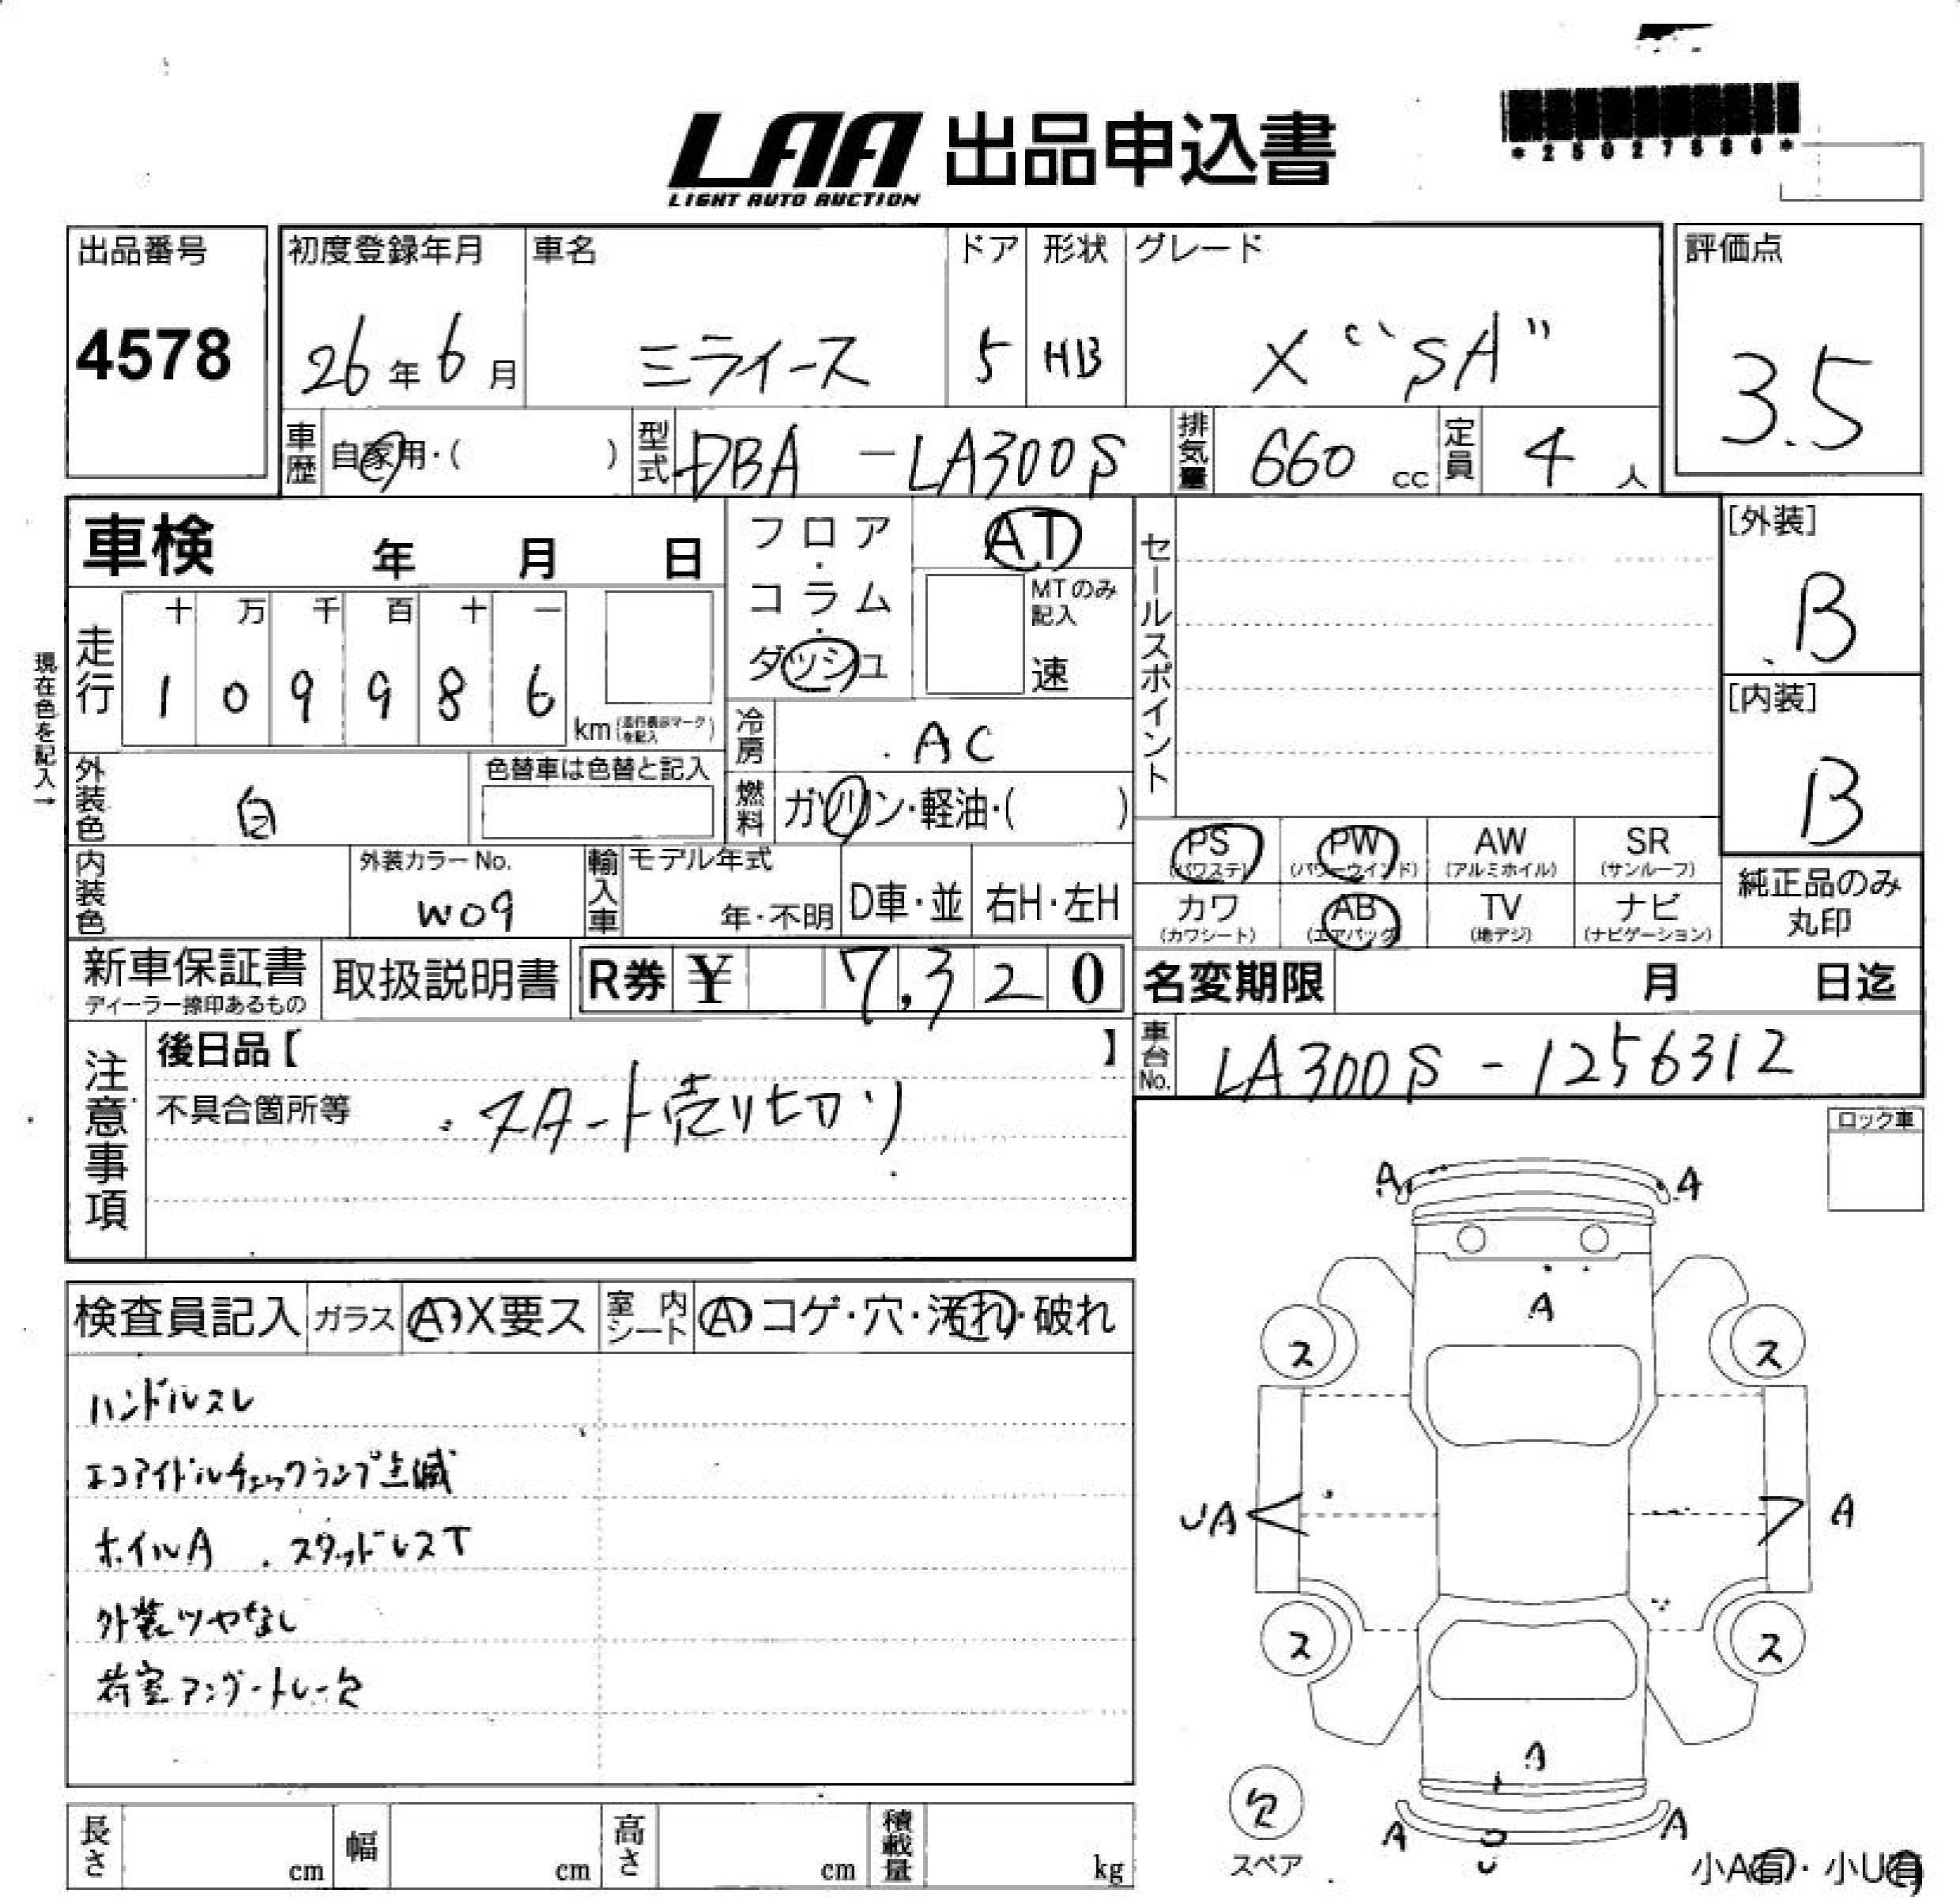 LAA 出品申込書
LIGHT AUTO AUCTION
出品番号
4578
初度登録年月
26年6月
車名
ミライース
ドア
5
形状
HB
グレード
X “SA”
評価点
3.5
車歴
自家用・( )
型式
DBA-LA300S
排気量
660 cc
定員
4 人
車検 年 月 日
フロア・コラム・ダッシュ
AT
MTのみ記入
速
現在色を記入→
走行
十 万 千 百 十 一
1 0 9 9 8 6
km(走行表示マークを記入)
冷房
AC
外装色
白
色替車は色替と記入
燃料
ガソリン・軽油・( )
内装色
外装カラーNo.
W09
輸入車
モデル年式
年・不明
D車・並
右H・左H
セールスポイント
[外装]
B
[内装]
B
PS (パワステ)
PW (パワーウインド)
AW (アルミホイル)
SR (サンルーフ)
カワ (カワシート)
AB (エアバッグ)
TV (地デジ)
ナビ (ナビゲーション)
純正品のみ丸印
新車保証書
ディーラー捺印あるもの
取扱説明書
R券 ¥ 7,320
名変期限 月 日迄
車台No.
LA300S-1256312
注意事項
後日品【 】
不具合箇所等
スタート売り切り
ロック車
検査員記入
ガラス
A・X要ス
室内シート
A・コゲ・穴・汚れ・破れ
ハンドルスレ
エコアイドルチェックランプ点滅
ホイルA . スタッドレスT
外装ツヤなし
荷室アンダートレー欠
A
A
A
ス
ス
UA
A
ス
ス
A
A
A
U
欠
スペア
小A有・小U有
長さ cm
幅 cm
高さ cm
積載量 kg